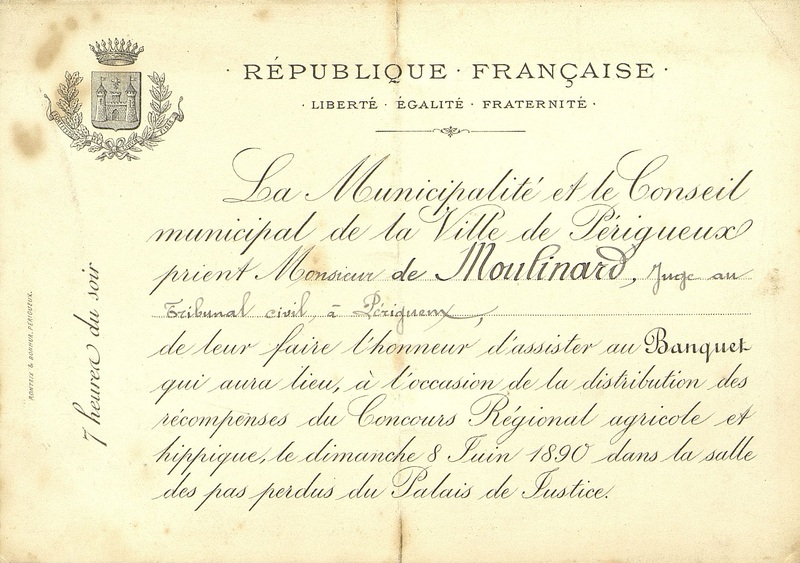 · RÉPUBLIQUE · FRANÇAISE ·
· LIBERTÉ · ÉGALITÉ · FRATERNITÉ ·
La Municipalité et le Conseil
municipal de la Ville de Périgueux
prient Monsieur de Moulinard, Juge au
Tribunal civil, à Périgueux,
de leur faire l'honneur d'assister au Banquet
qui aura lieu, à l'occasion de la distribution des
récompenses du Concours Régional agricole et
hippique, le dimanche 8 Juin 1890 dans la salle
des pas perdus du Palais de Justice.
7 heures du soir